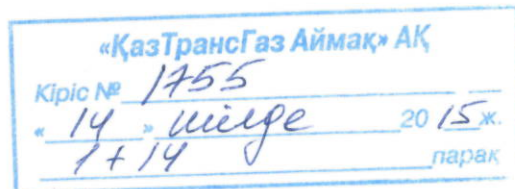 «ҚазТрансГаз Аймақ» АҚ
Кіріс № 1755
« 14 » шілде 2015 ж.
1 + 14 парақ